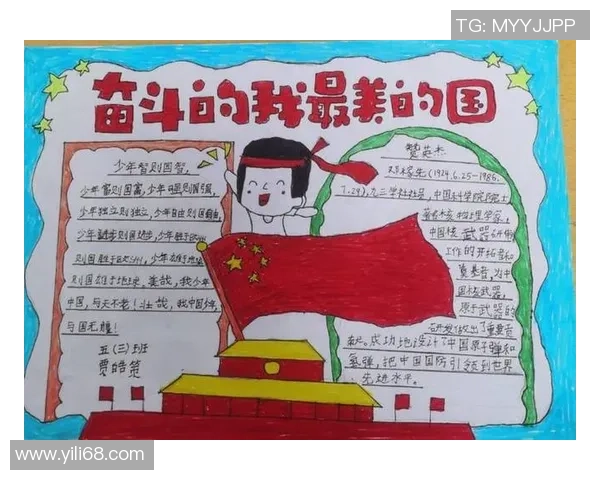 TG: MYYJJPP
奋斗的我最美的国
少年智则国智,
少年富则国富,少年强则国强,
少年独立则独立,少年自由则国自由,
少年进步则国进步,少年胜于欧洲
则国胜于欧洲,少年雄于地球
则国雄于地球,美哉,我少年
中国,与天不老!壮哉,我中国少年,
与国无疆!
五(三)班
贾皓
赞英杰
邓稼先(1924.6.25-1986.
7.29),九三学社社员,中国科学院院士,
著名核物理学家,
中国核武器研制
工作的开拓者和
奠基者,为中
国核武器,
原子武器的
研发做出了重要贡
献。成功地设计了中国原子弹和
氢弹,把中国国防引领到世界
先进水平。
www.yili68.com